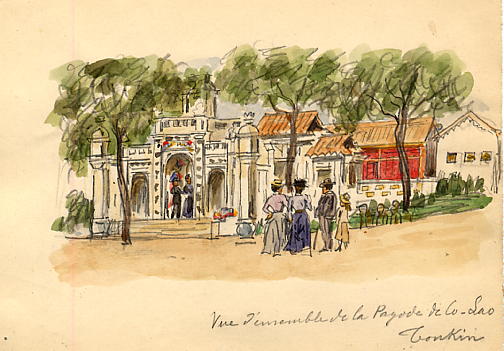 Vue d'ensemble de la Pagode de Co-Lao
Tonkin